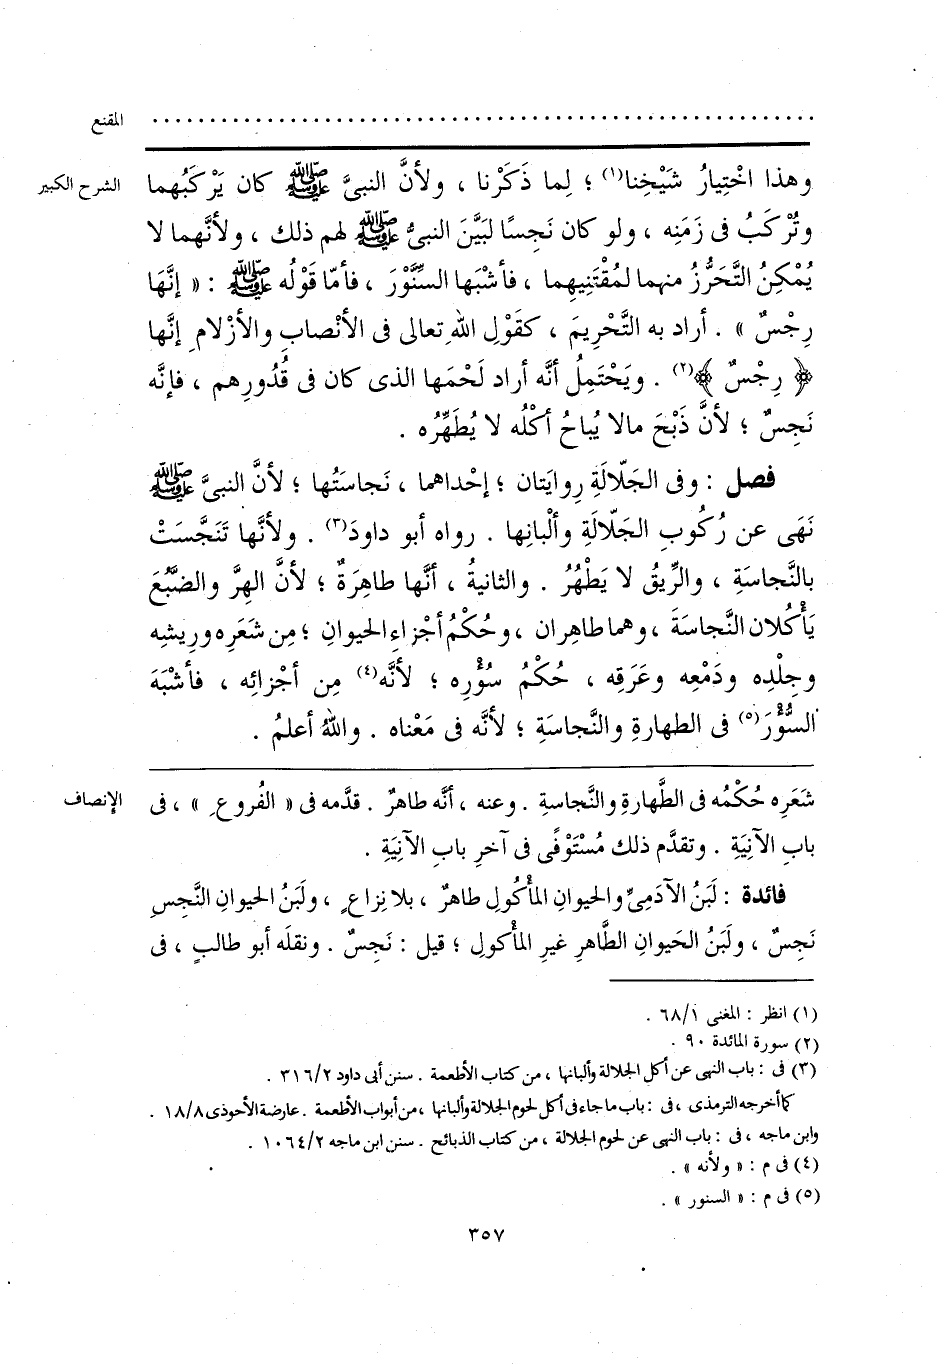 المقنع ........................................
الشرح الكبير
وهذا اخْتِيارُ شَيْخِنا(١) ؛ لِما ذَكَرْنا ، ولأنَّ النبىَّ ﷺ كان يَرْكَبُهما
وتُرْكَبُ فى زَمَنِه ، ولو كان نَجِسًا لبَيَّنَ النبىُّ ﷺ لهم ذلك ، ولأنَّهما لا
يُمْكِنُ التَّحَرُّزُ منهما لمُقْتَنِيهما ، فأشْبَها السِّنَّوْرَ ، فأمّا قَوْلُه ﷺ : « إنَّهَا
رِجْسٌ » . أراد به التَّحْرِيمَ ، كقَوْلِ اللهِ تعالى فى الأنْصابِ والأزْلامِ إنَّها
﴿ رِجْسٌ ﴾(٢) . ويَحْتَمِلُ أنَّه أراد لَحْمَها الذى كان فى قُدُورِهم ، فإنَّه
نَجِسٌ ؛ لأنَّ ذَبْحَ مالا يُباحُ أكْلُه لا يُطَهِّرُه .
فصل : وفى الجَلّالَةِ رِوايَتان ؛ إحْداهما ، نَجاسَتُها ؛ لأنَّ النبىَّ ﷺ
نَهَى عن رُكُوبِ الجَلّالَةِ وألْبانِها . رواه أبو داودَ(٣) . ولأنَّها تَنَجَّسَتْ
بالنَّجاسَةِ ، والرِّيقُ لا يَطْهُرُ . والثانيةُ ، أنَّها طاهِرَةٌ ؛ لأنَّ الهِرَّ والضَّبُعَ
يَأْكُلان النَّجاسَةَ ، وهما طاهِران ، وحُكْمُ أجْزاءِ الحيوانِ ؛ مِن شَعَرِه ورِيشِه
وجِلْدِه ودَمْعِه وعَرَقِه ، حُكْمُ سُؤْرِه ؛ لأنَّه(٤) مِن أجْزائِه ، فأشْبَهَ
السُّؤْرَ(٥) فى الطهارةِ والنَّجاسَةِ ؛ لأنَّه فى مَعْناه . واللهُ أعلمُ .
الإنصاف
شَعَرِه حُكْمُه فى الطَّهارةِ والنَّجاسةِ . وعنه ، أنَّه طاهرٌ . قدَّمه فى « الفُروعِ » ، فى
بابِ الآنِيَةِ . وتقدَّم ذلك مُسْتَوْفًى فى آخرِ بابِ الآنِيَةِ .
فائدة : لَبَنُ الآدَمِىِّ والحيوانِ المأْكُولِ طاهرٌ ، بلا نِزاعٍ ، ولَبَنُ الحيوانِ النَّجِسِ
نَجِسٌ ، ولَبَنُ الحَيوانِ الطَّاهرِ غيرِ المأْكولِ ؛ قيل : نَجِسٌ . ونقلَه أبو طالبٍ ، فى
(١) انظر : المغنى ٦٨/١ .
(٢) سورة المائدة ٩٠ .
(٣) فى : باب النهى عن أكل الجلالة وألبانها ، من كتاب الأطعمة . سنن أبى داود ٣١٦/٢ .
كما أخرجه الترمذى ، فى : باب ما جاء فى أكل لحوم الجلالة وألبانها ، من أبواب الأطعمة . عارضة الأحوذى ١٨/٨ .
وابن ماجه ، فى : باب النهى عن لحوم الجلالة ، من كتاب الذبائح . سنن ابن ماجه ١٠٦٤/٢ .
(٤) فى م : « ولأنه » .
(٥) فى م : « السنور » .
٣٥٧